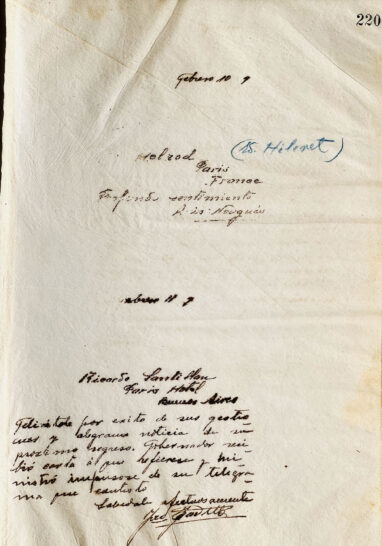 220
Febrero 10 9
Helrod (W. Hileret)
Paris
France
Profundo sentimiento
Nougués
ebrero 11 9
Ricardo Santillan
Paris Hotel
Buenos Aires
Felicitole por exito de sus gestio
nes y alegrame noticia de su
proximo regreso. Gobernador reci
bió carta à que refierese y mi
nistro impusose de su telegra
ma que contesto
Cabezal afectuosamente
José